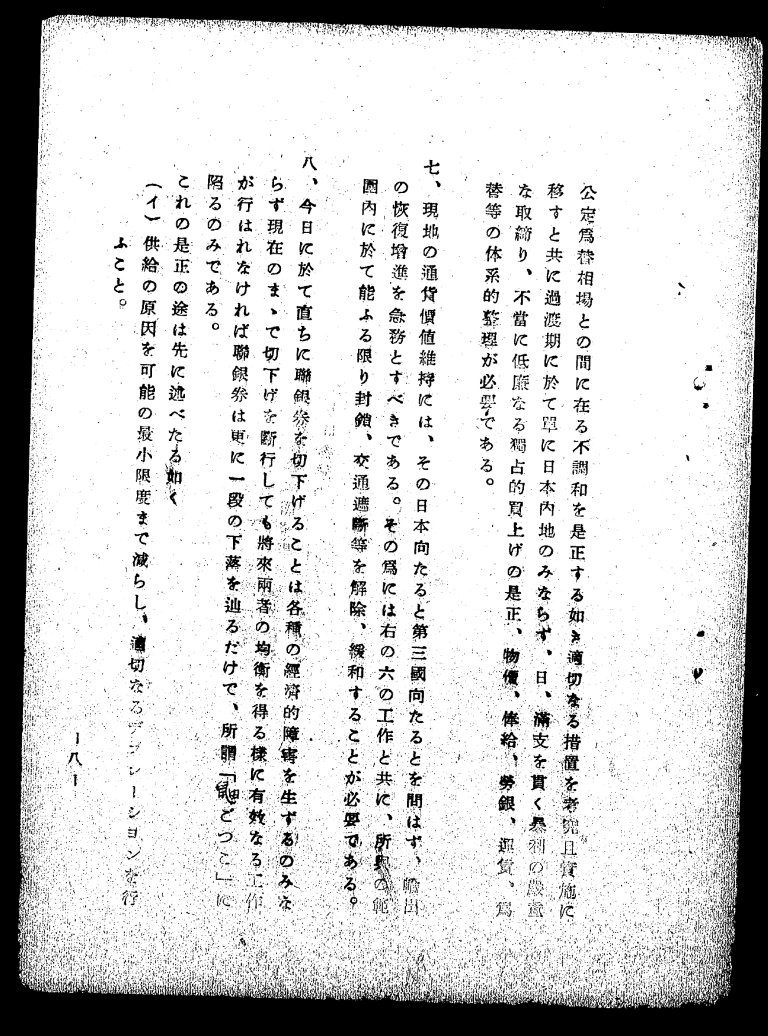 公定爲替相場との間に在る不調和を是正する如き適切なる措置を考究且實施に
移すと共に過渡期に於て單に日本內地のみならず、日、滿支を貫く暴利の嚴重
な取締り、不當に低廉なる獨占的買上げの是正、物價、俸給、勞銀、運賃、爲
替等の体系的整理が必要である。
七、現地の通貨價値維持には、その日本向たると第三國向たるとを問はず、輸出
の恢復增進を急務とすべきである。その爲には右の六の工作と共に、所與の範
圍內に於て能ふる限り封鎖、交通遮斷等を解除、緩和することが必要である。
八、今日に於て直ちに聯銀券を切下げることは各種の經濟的障害を生ずるのみな
らず現在のまゝで切下げを斷行しても將來兩者の均衡を得る樣に有效なる工作
が行はれなければ聯銀券は更に一段の下落を辿るだけで、所謂「鼬ごつこ」に
陷るのみである。
これの是正の途は先に述べたる如く
(イ)供給の原因を可能の最小限度まで減らし、適切なるデフレーシヨンを行
ふこと。
―八―